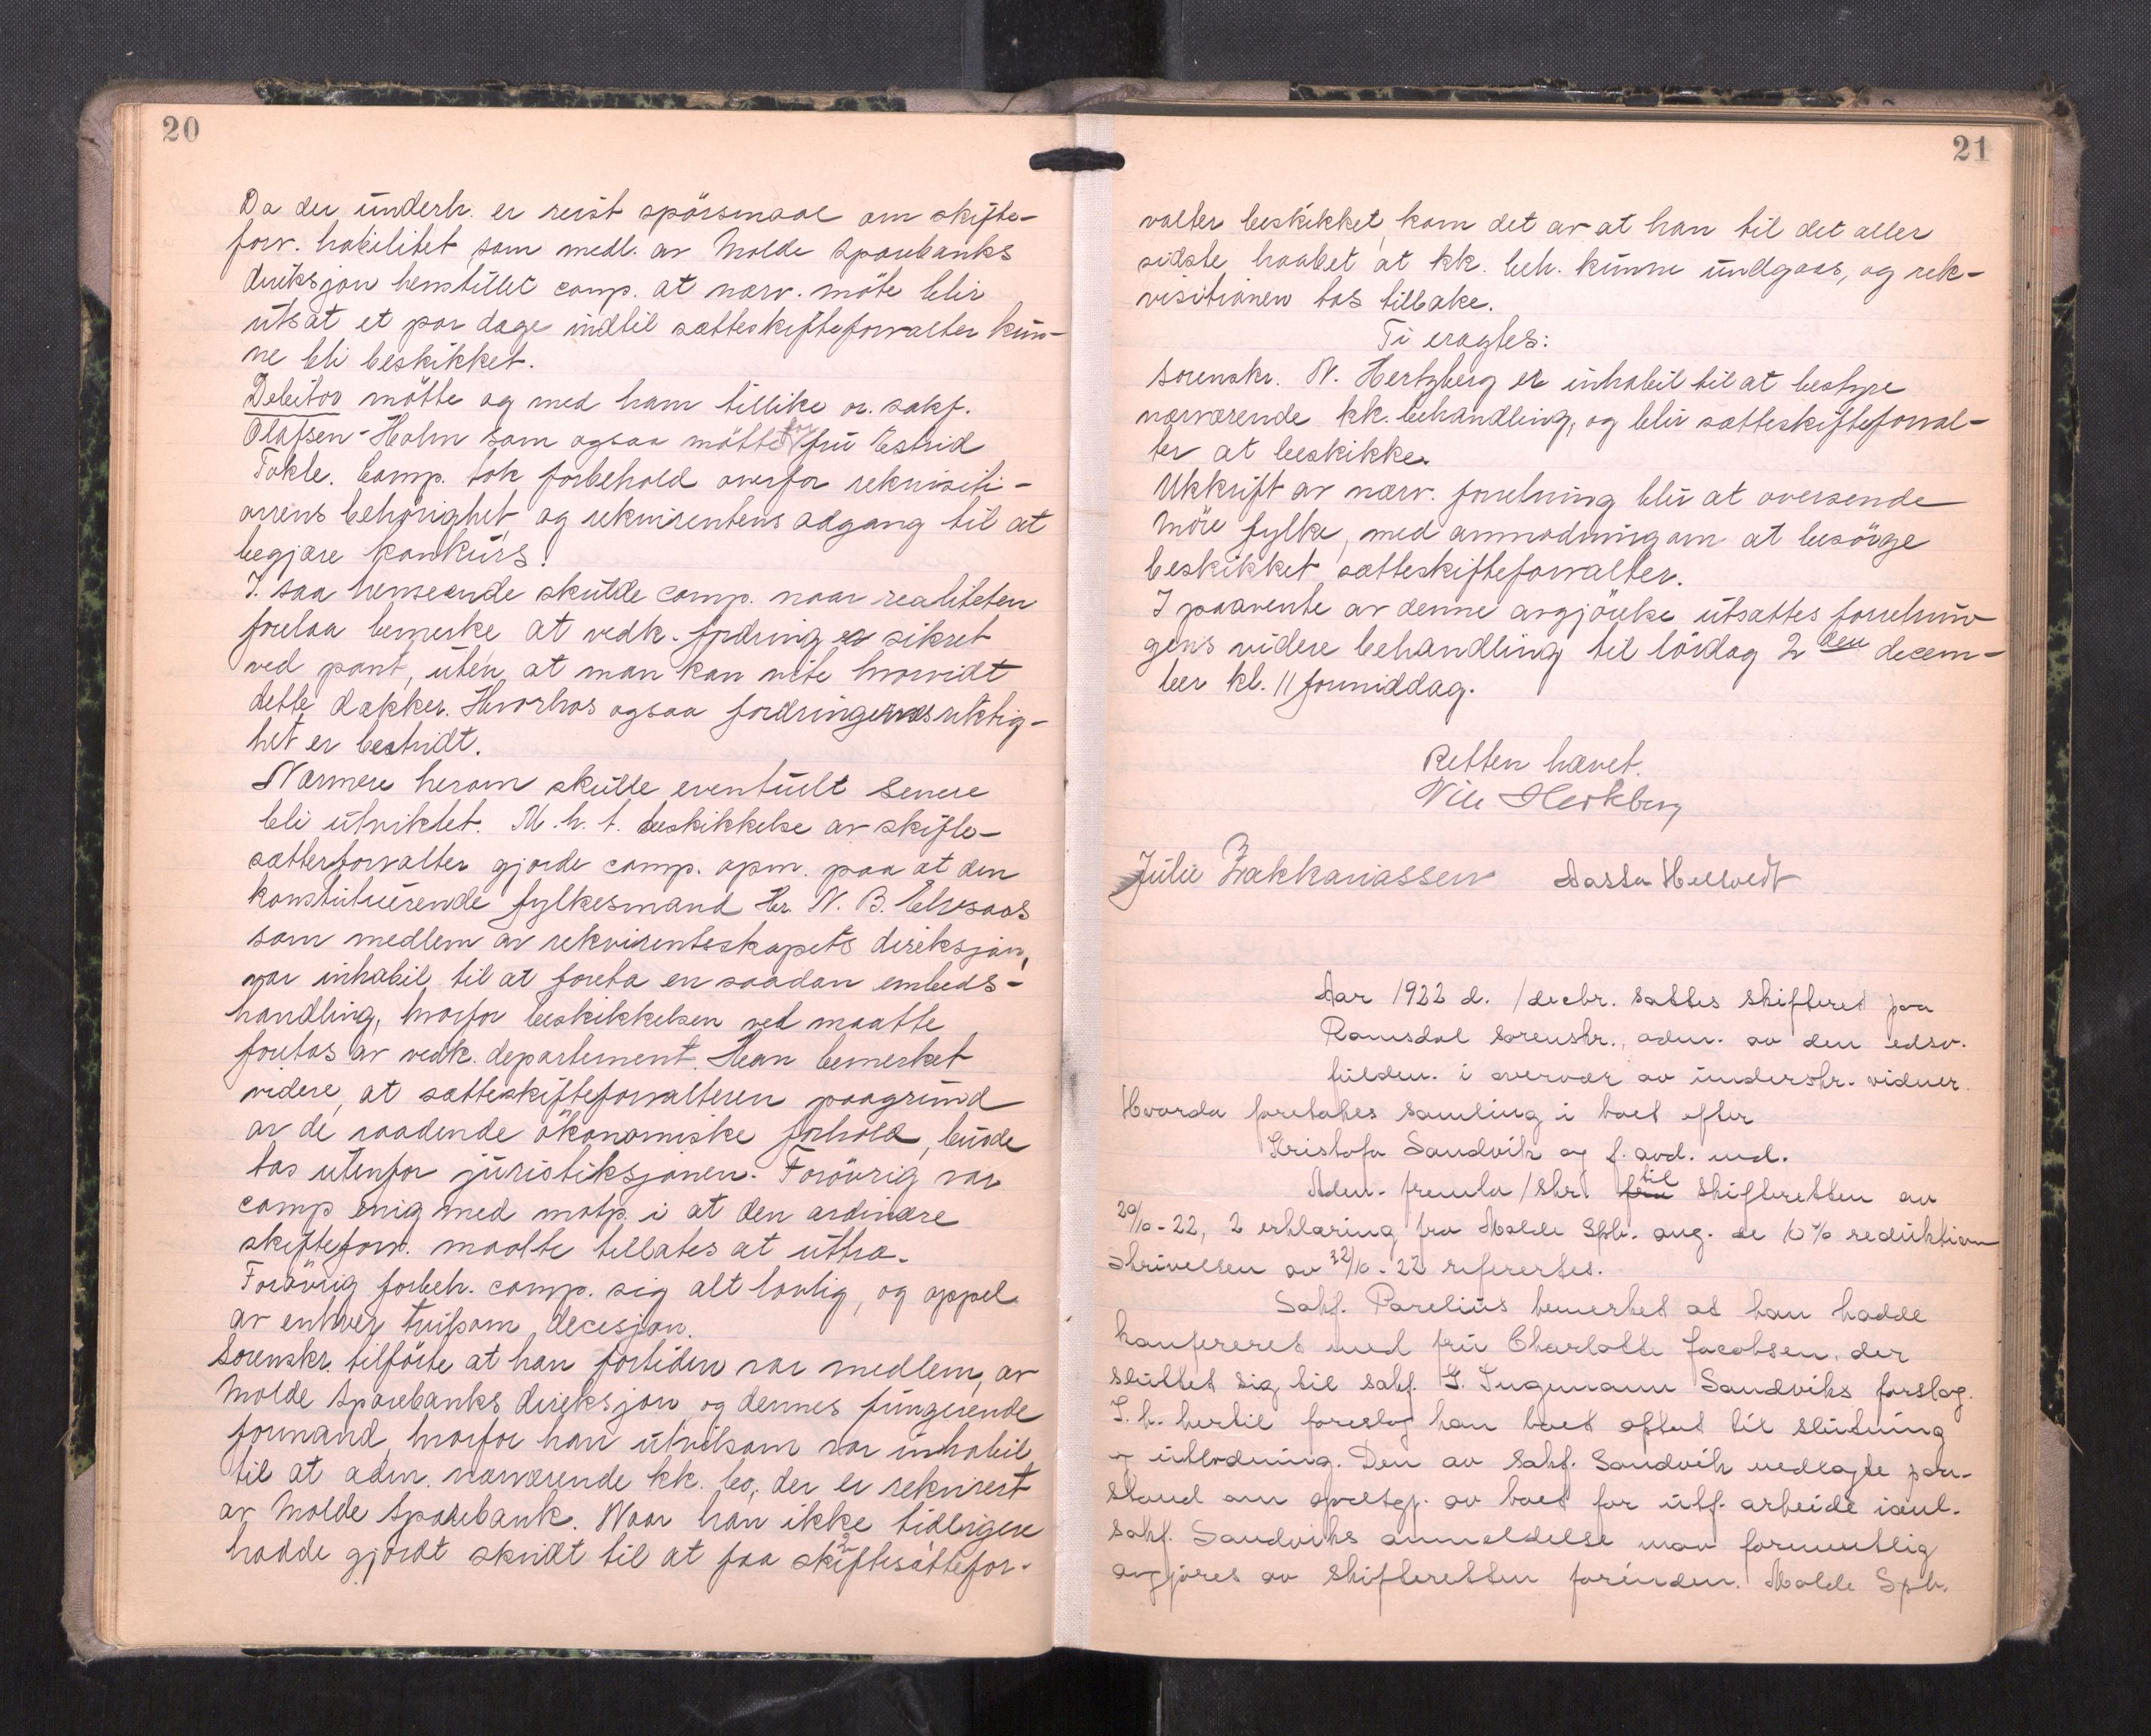 20
Da der underh. er reist spörsmaal om skifte-
forv. habilitet som medl. av Molde Sparebanks
direksjon henstillet comp. at nærv. möte blir
utsat et par dage indtil sætteskifteforvalter kun-
ne bli beskikket.
Debitor mötte og med ham tillike or. sakf.
Olafsen-Holm som ogsaa mötte for fru Estrid
Tokle. Comp. tok forbehold overfor rekvisiti-
onens behörighet og rekvirentens adgang til at
begjære konkurs.
I saa henseende skulde comp. naar realiteten
forelaa bemerke at vedk. fordring er sikret
ved pant, uten at man kan vite hvorvidt
dette dækker. Hvorhos ogsaa fordringernes riktig-
het er bestridt.
Nærmere herom skulle eventuelt senere
bli utviklet. M.h.t. beskikkelse av skifte-
sætteforvalter gjorde comp. opm. paa at den
konstituerende fylkesmand Hr. N. B.
som medlem av rekvirentselskapets direksjon,
var inhabil til at foreta en saadan embeds-
handling, hvorfor beskikkelsen ved maatte
foretas av vedk. departement. Han bemerket
videre, at sætteskifteforvalteren paagrund
av de raadende ökonomiske forhold, burde
tas utenfor juristiksjonen. Forövrig var
comp. enig med motp. i at den ordinære
skifteforv. maatte tillates at uttra.
Forövrig forbeh. comp. sig alt lovlig, og appel
av enhver tvilsom decesjon.
Sorenskr. tilförte at han fortiden var medlem av
Molde Sparebanks direksjon og dennes fungerende
formand, hvorfor han utvilsom var inhabil
til at adm. nærværende kk. bo, der er rekvirert
av Molde Sparebank. Naar han ikke tidligere
hadde gjordt skridt til at faa skiftesættefor-
21
valter beskikket, kom det av at han til det aller
sidste haabet at kk. beh. kunne undgaas, og rek-
visitionen tas tilbake.
Ti eragtes:
Sorenskr. N. Hertzberg er inhabil til at bestyre
nærværende kk. behandling, og blir sætteskifteforval-
ter at beskikke.
Utskrift av nærv. forretning blir at oversende
Möre fylke, med anmodning om at besörge
beskikket sætteskifteforvalter.
I paavente av denne avgjörelse utsættes forretnin-
gens videre behandling til lördag 2 den decem-
ber kl. 11 formiddag.
Retten hævet.
Nils Hertzberg
Julie Zakkariassen Aassa Hellvedt
Aar 1922 d. 1 decbr. sattes skifteret paa
Romsdal sorenskr., adm. av den edsv.
fuldm. i overvær av underskr. vidner.
Hvorda foretokes samling i boet efter
Kristofer Sandvik og f. avd. md.
Adm. fremla 1 skr. fra til skifteretten av
20/10-22, 2 erklæring fra Molde Spb. ang. de 10 % reduktion
Skrivelsen av 22/10-22 referertes.
Sakf. Parelius bemerket at han hadde
konfereret med fru Charlotte Jacobsen, der
sluttet sig til sakf. I. Ingemann Sandviks forslag.
I. h. hertil foreslog han boet optat til slutning
og utlodning. Den av sakf. Sandvik nedlagte paa-
stand om godtgj. av boet for utf. arbeide
sakf. Sandviks anmeldelse maa formentlig
avgjöres av skifteretten forinden. Molde Spb.